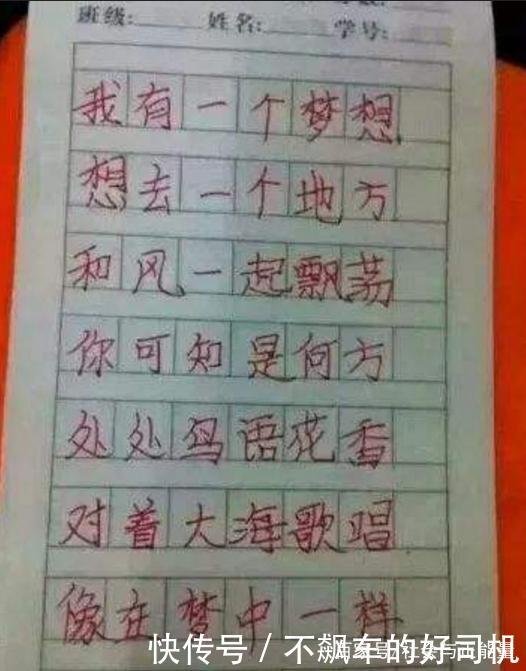 班级: 姓名: 学号:
我有一个梦想
想去一个地方
和风一起飘荡
你可知是何方
处处鸟语花香
对着大海歌唱
像在梦中一样
快传号 / 不飙车的好司机